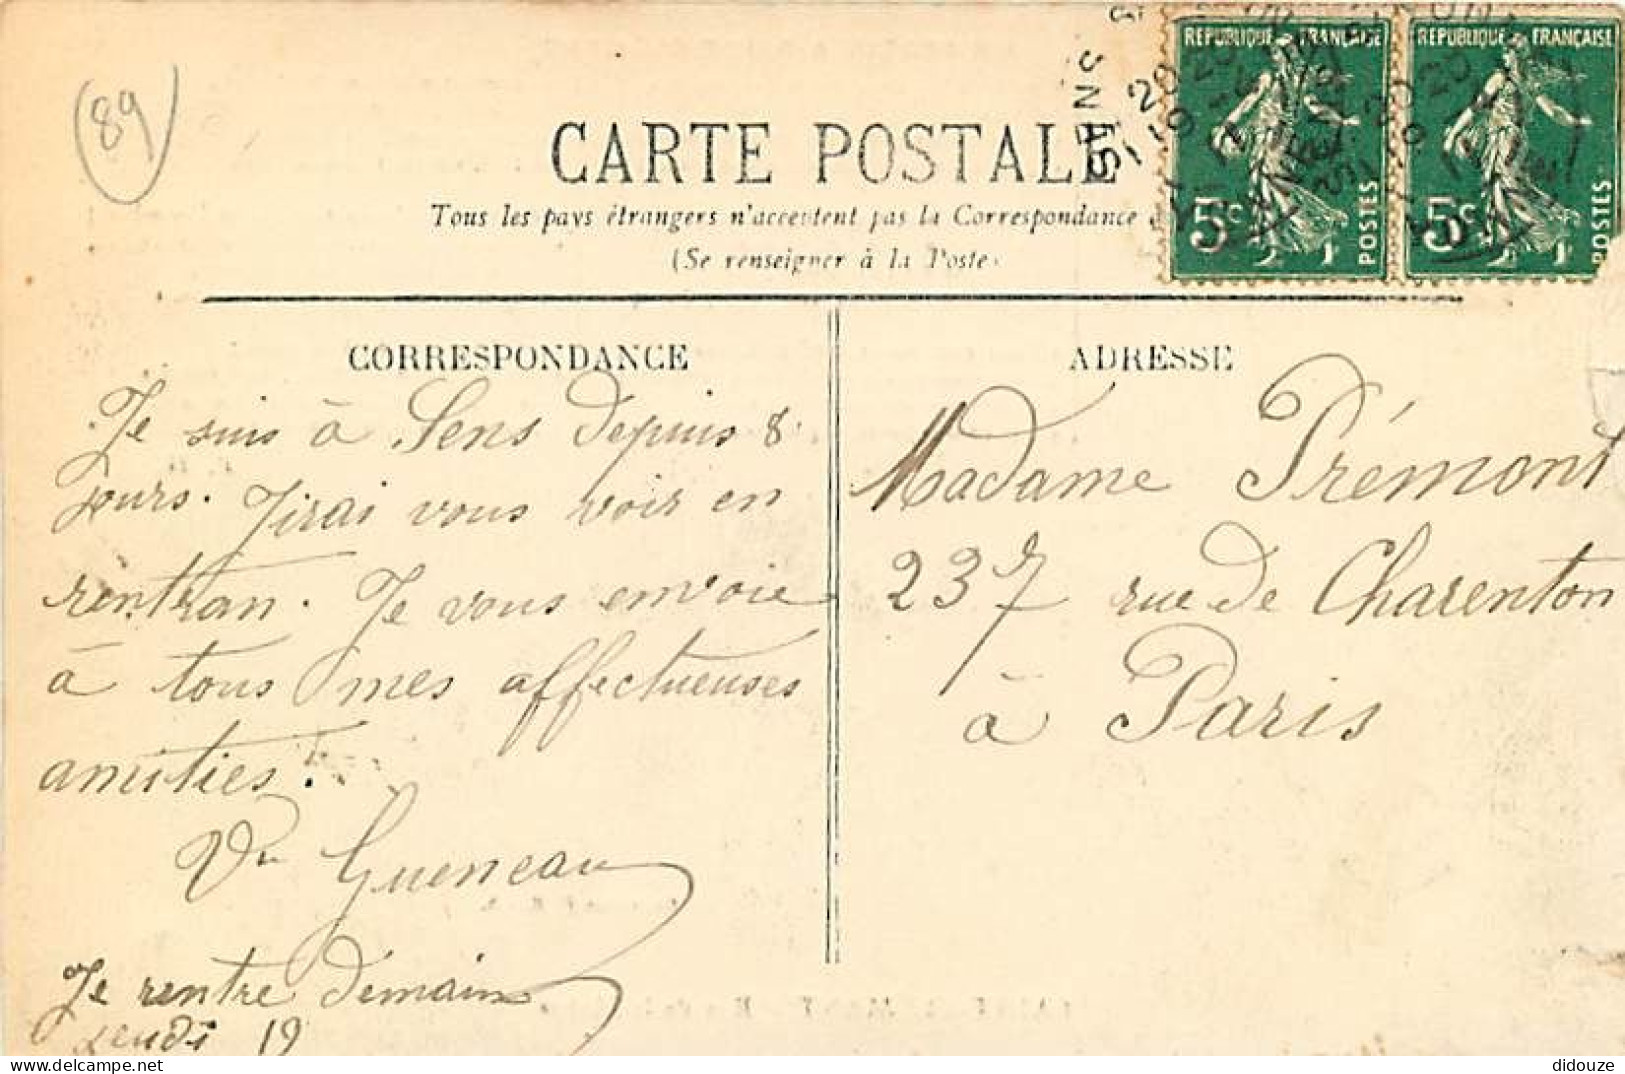 89
CARTE POSTALE
Tous les pays étrangers n'acceptent pas la Correspondance
(Se renseigner à la Poste)
RÉPUBLIQUE FRANÇAISE
5c
POSTES
RÉPUBLIQUE FRANÇAISE
5c
POSTES
SENS
CORRESPONDANCE
Je suis à Sens depuis 8
jours. J'irai vous voir en
rentran. Je vous envoie
à tous mes affectueuses
amities.
Vve Gueneau
Je rentre demain
jeudi 19
ADRESSE
Madame Prémont
237 rue de Charenton
à Paris
didouze